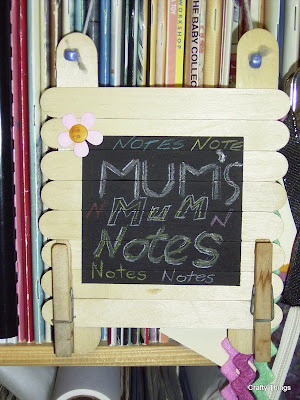 WORKSHOP
THE BABY COLLEC
NOTES NOTE
MUM'S
N MUM N
Notes
Notes Notes
Crafty Things